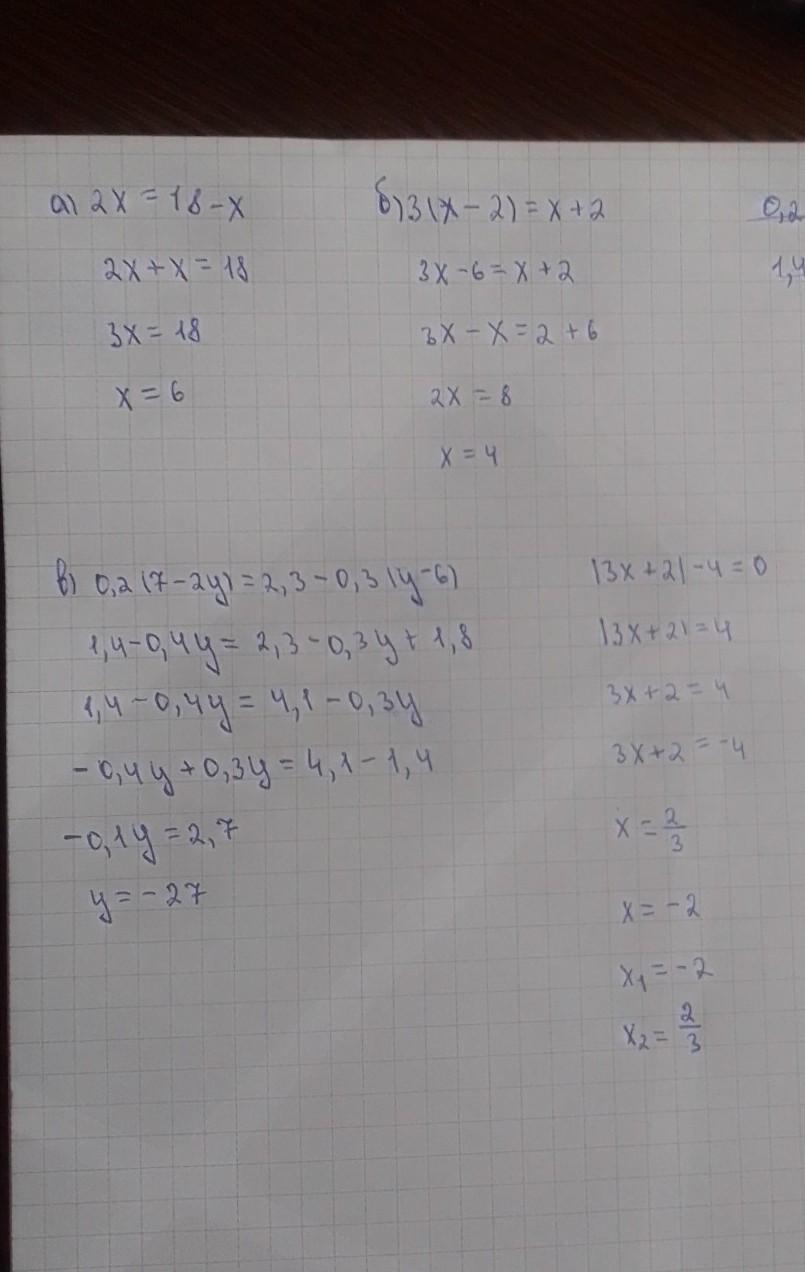 а) 2x = 18 - x
2x + x = 18
3x = 18
x = 6
б) 3(x - 2) = x + 2
3x - 6 = x + 2
3x - x = 2 + 6
2x = 8
x = 4
0,2
1,4
в) 0,2(7 - 2y) = 2,3 - 0,3(y - 6)
1,4 - 0,4y = 2,3 - 0,3y + 1,8
1,4 - 0,4y = 4,1 - 0,3y
-0,4y + 0,3y = 4,1 - 1,4
-0,1y = 2,7
y = -27
|3x + 2| - 4 = 0
|3x + 2| = 4
3x + 2 = 4
3x + 2 = -4
x = 2/3
x = -2
x₁ = -2
x₂ = 2/3